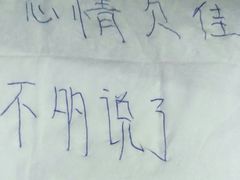 心情欠佳
不明说了